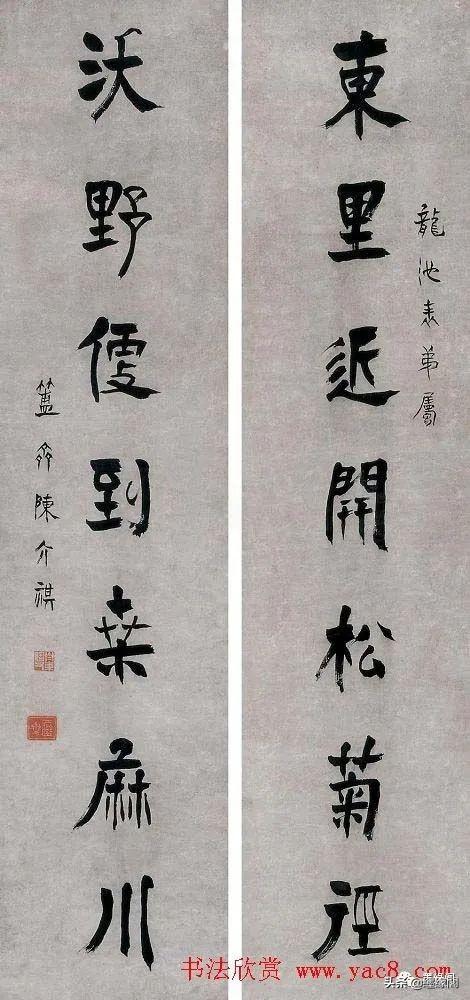 龍池表弟屬
東里近開松菊徑
沃野到桑麻川
簠齋陳介祺
书法欣赏 www.yac8.com